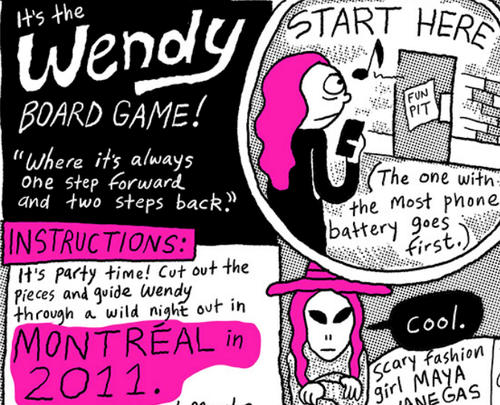 It's the
Wendy
BOARD GAME!
"Where it's always
one step forward
and two steps back."
INSTRUCTIONS:
It's party time! Cut out the
pieces and guide Wendy
through a wild night out in
MONTRÉAL in
2011.
START HERE
FUN
PIT
(The one with
the most phone
battery goes
first.)
Cool.
Scary fashion
girl MAYA